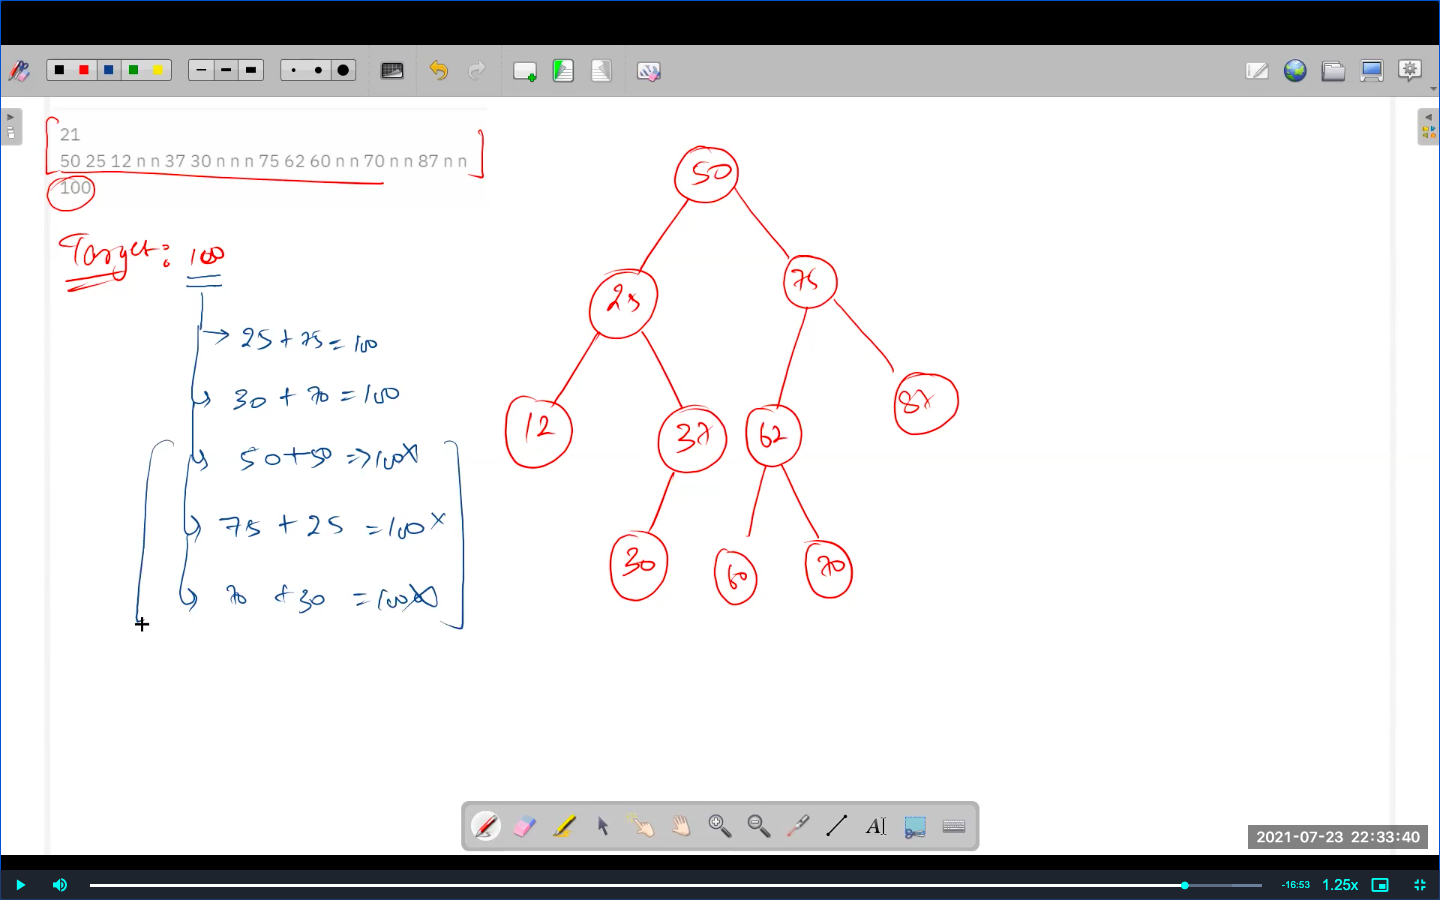 21
50 25 12 n n 37 30 n n n 75 62 60 n n 70 n n 87 n n
100
Target: 100
25 + 75 = 100
30 + 70 = 100
50 + 50 => 100 x
75 + 25 = 100 x
70 + 30 = 100 x
50
25
75
12
37
62
87
30
60
70
2021-07-23 22:33:40
-16:53
1.25x